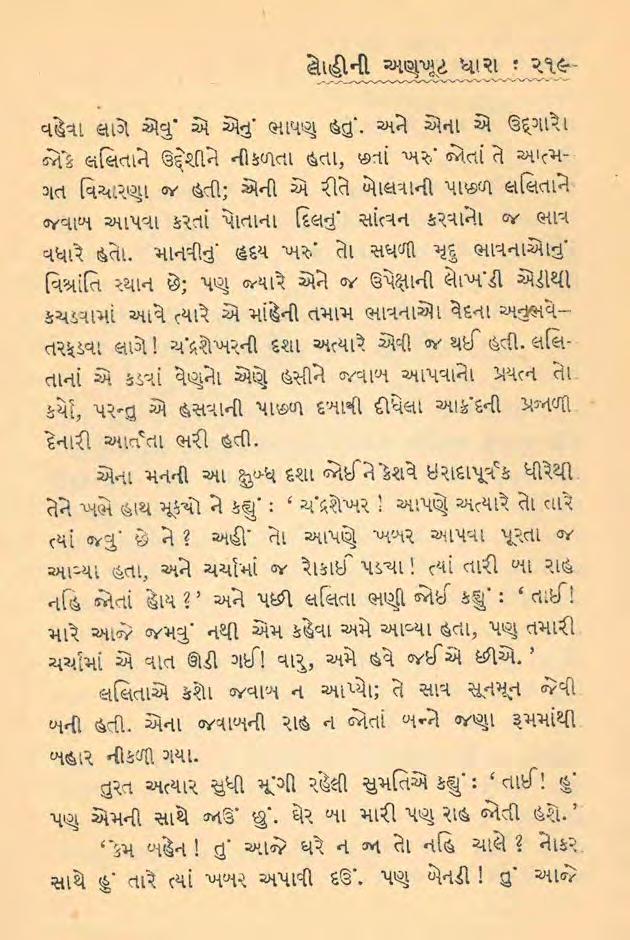 લોહીની અણખૂટ ધારા : ૨૧૯
વહેવા લાગે એવું એ એનું ભાષણ હતું. અને એના એ ઉદ્ગારો
જોકે લલિતાને ઉદ્દેશીને નીકળતા હતા, છતાં ખરું જોતાં તે આત્મ-
ગત વિચારણા જ હતી; એની એ રીતે બોલવાની પાછળ લલિતાને
જવાબ આપવા કરતાં પોતાના દિલનું સાંત્વન કરવાનો જ ભાવ
વધારે હતો. માનવીનું હૃદય ખરું તો સઘળી મૃદુ ભાવનાઓનું
વિશ્રાંતિ સ્થાન છે; પણ જ્યારે એને જ ઉપેક્ષાની લોખંડી એડીથી
કચડવામાં આવે ત્યારે એ માંહેની તમામ ભાવનાઓ વેદના અનુભવે—
તરફડવા લાગે! ચંદ્રશેખરની દશા અત્યારે એવી જ થઈ હતી. લલિ-
તાનાં એ કડવાં વેણનો એણે હસીને જવાબ આપવાનો પ્રયત્ન તો
કર્યો, પરન્તુ એ હસવાની પાછળ દબાવી દીધેલા આક્રંદની પ્રજાળી
દેનારી આર્તતા ભરી હતી.
એના મનની આ ક્ષુબ્ધ દશા જોઈને કેશવે ઇરાદાપૂર્વક ધીરેથી
તેને ખભે હાથ મૂક્યો ને કહ્યું : ‘ ચંદ્રશેખર ! આપણે અત્યારે તો તારે
ત્યાં જવું છે ને ? અહીં તો આપણે ખબર આપવા પૂરતા જ
આવ્યા હતા, અને ચર્ચામાં જ રોકાઈ પડ્યા ! ત્યાં તારી બા રાહ
નહિ જોતાં હોય ?’ અને પછી લલિતા ભણી જોઈ કહ્યું : ‘ તાઈ !
મારે આજે જમવું નથી એમ કહેવા અમે આવ્યા હતા, પણ તમારી
ચર્ચામાં એ વાત ઊડી ગઈ! વારુ, અમે હવે જઈએ છીએ. ’
લલિતાએ કશો જવાબ ન આપ્યો; તે સાવ સૂનમૂન જેવી
બની હતી. એના જવાબની રાહ ન જોતાં બન્ને જણા રૂમમાંથી
બહાર નીકળી ગયા.
તુરત અત્યાર સુધી મૂંગી રહેલી સુમતિએ કહ્યું : ‘ તાઈ ! હું
પણ એમની સાથે જાઉં છું. ઘેર બા મારી પણ રાહ જોતી હશે. ’
‘કેમ બહેન ! તું આજે ઘરે ન જા તો નહિ ચાલે ? નોકર
સાથે હું તારે ત્યાં ખબર અપાવી દઉં. પણ બેનડી ! તું આજે